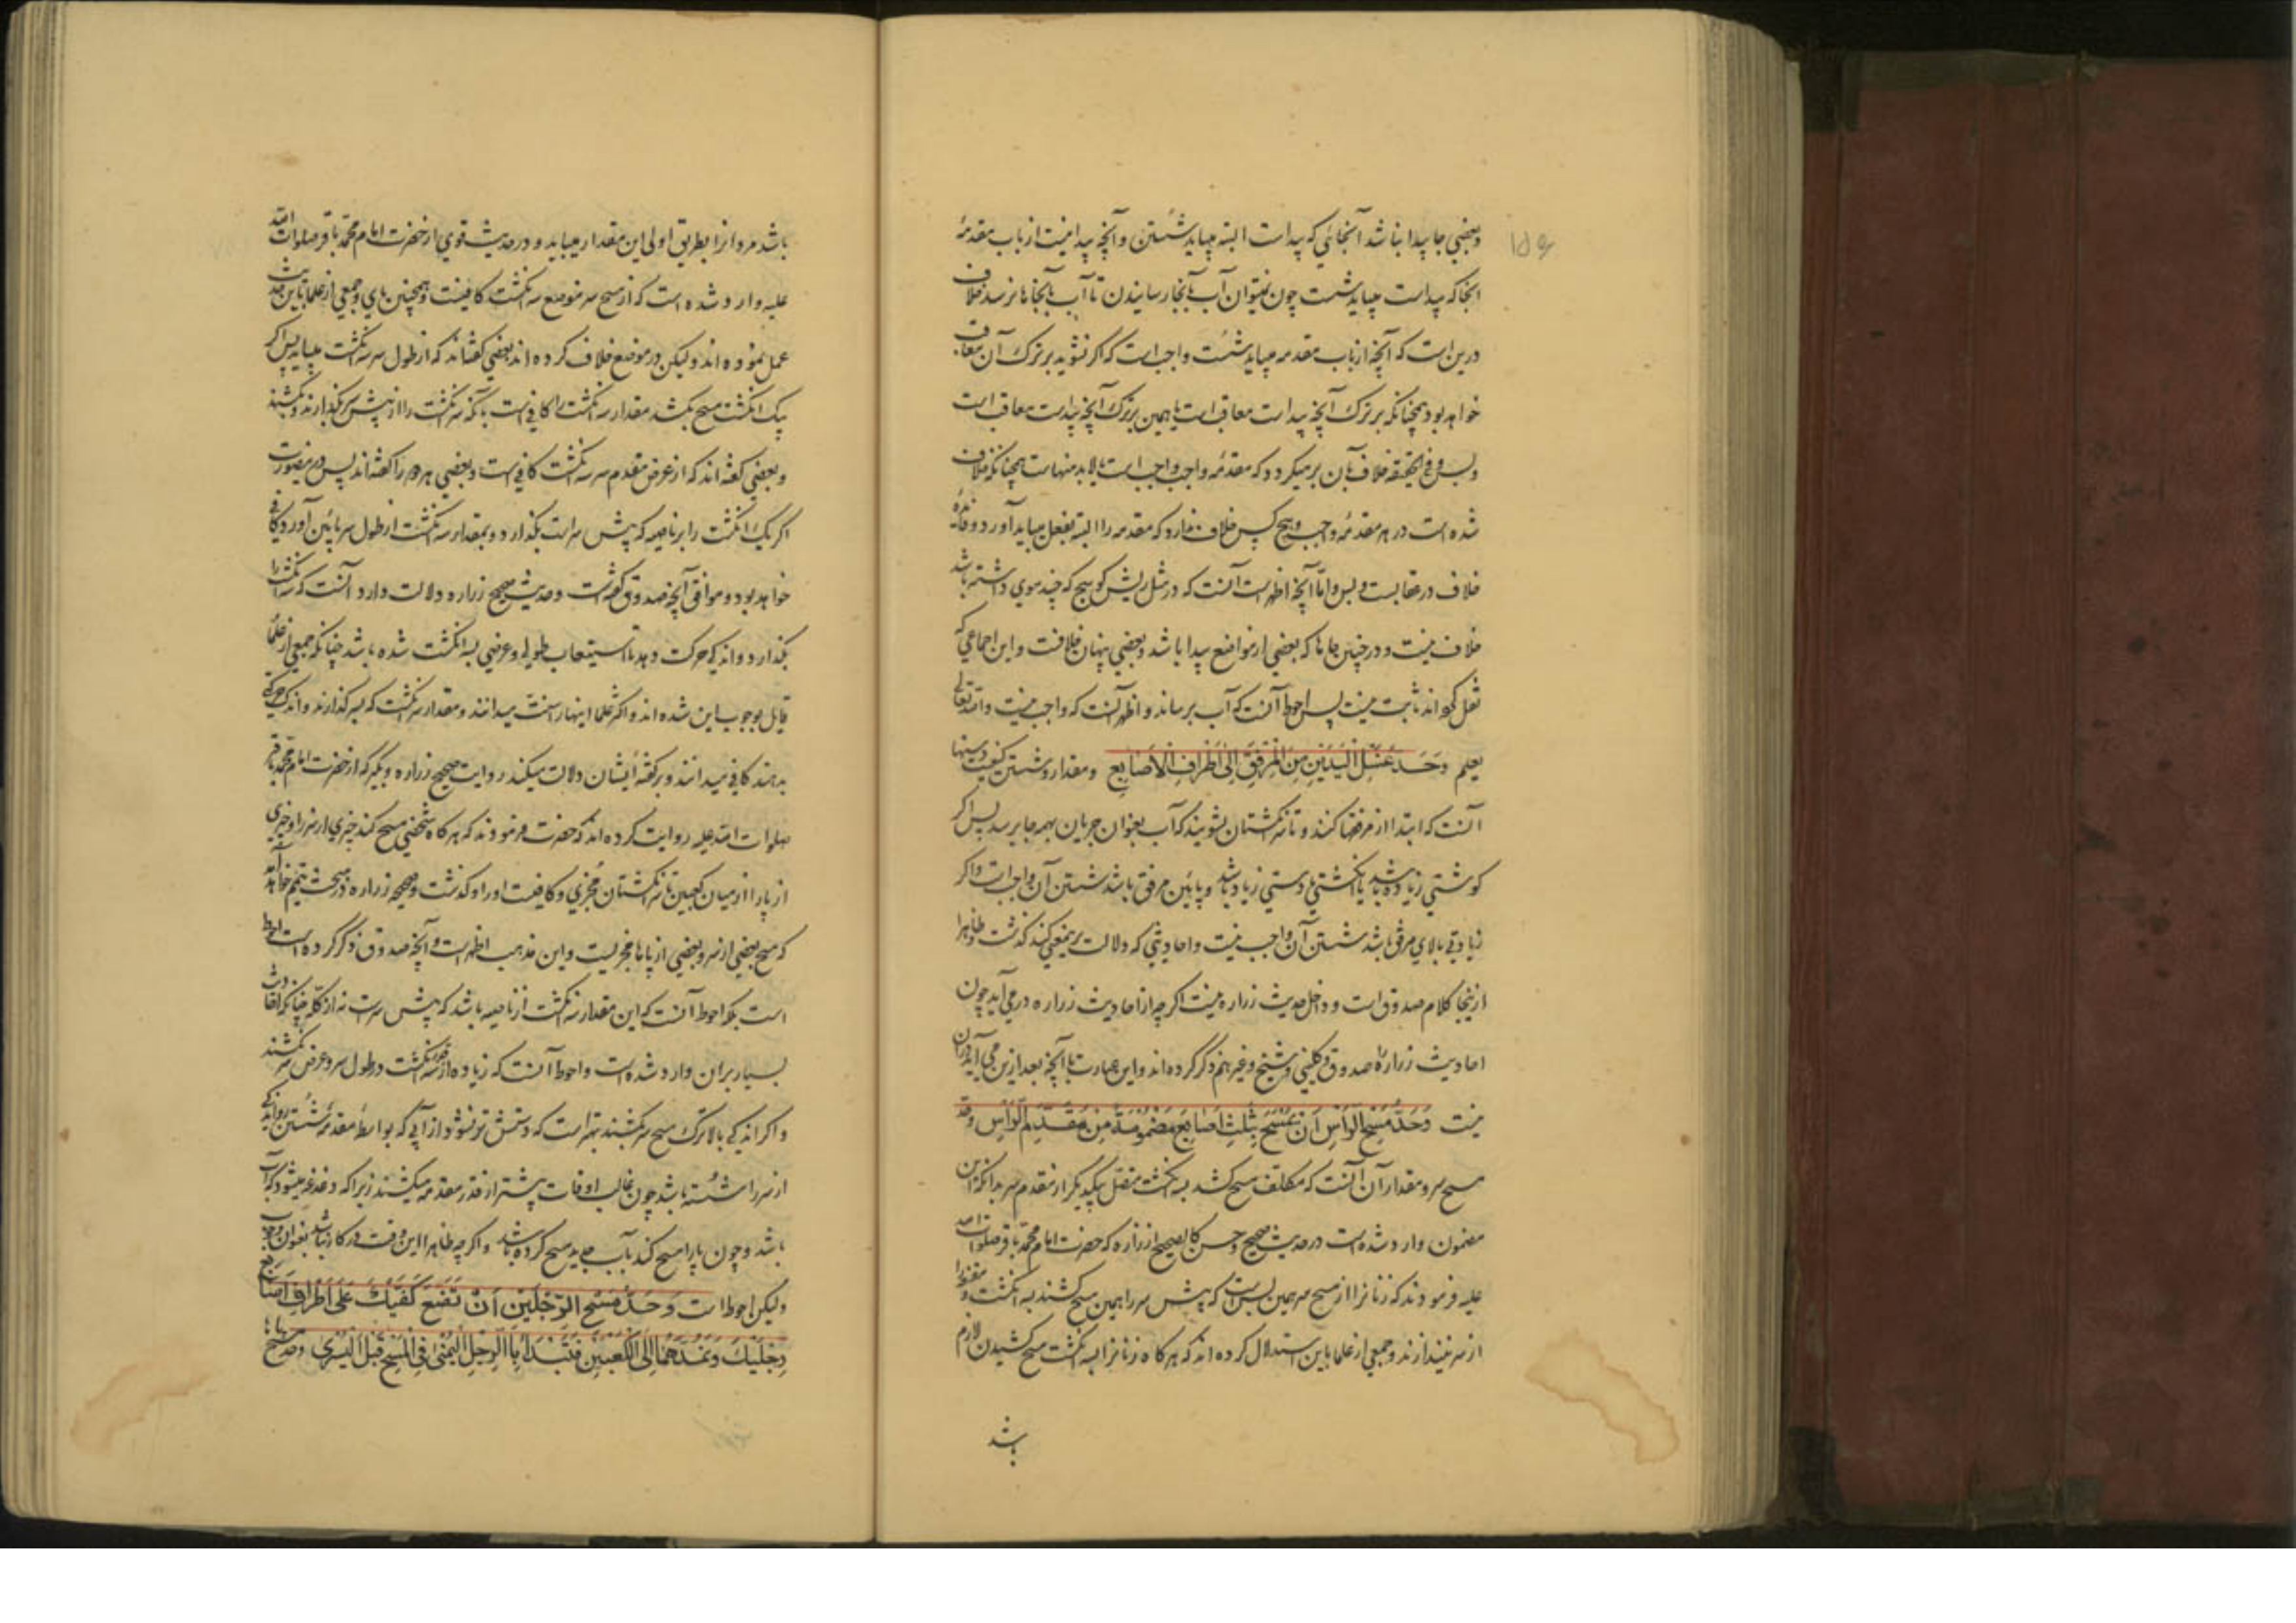 وبعضي جا پيدا نباشد آنجائي كه پيداست البته ميبايد شستن و آنچه پيدا نيست از باب مقدمهٔ
آنجا كه پيداست ميبايد شست چون نميتوان آب بآنجا رسانيدن تا آب بآنجاها نرسد خلاف
درين است كه آنچه از باب مقدمه ميبايد شست واجب است كه اگر نشويد بر ترك آن معاقب
خواهد بود همچنانكه بر ترك آنچه پيداست معاقب است يا همين بر ترك آنچه پيداست معاقب است
وبس و في الحقيقه خلاف بآن برميگردد كه مقدمهٔ واجب واجب است يا لابد منهاست همچنانكه خلاف
شده است در هر مقدمهٔ واجب وهيچ كس خلاف ندارد كه مقدمه را البته بفعل ميبايد آورد و فائدهٔ
خلاف در عقابست وبس واما آنچه اظهر است آنست كه در مثل ريش كوسج كه چند موي داشته باشد
خلاف نيست و در چنين جاها كه بعضي از مواضع پيدا باشد وبعضي پنهان خلافست و اين اجماعي كه
نقل كرده‌اند ثابت نيست پس احوط آنست كه آب برساند و اظهر آنست كه واجب نيست والله تعالي
يعلم وَحَدُّ غَسْلِ الْيَدَيْنِ مِنَ الْمِرْفَقِ اِلَى اَطْرَافِ الْاَصَابِعِ ومقدار شستن دستها
آنست كه ابتدا از مرفقها كنند و تا سر انگشتان بشويند كه آب بعنوان جريان بهمه جا برسد پس اگر
گوشتي زياده باشد يا انگشتي يا دستي زياد باشد و پايين مرفق باشد شستن آن واجب است و اگر
زيادتي بالاي مرفق باشد شستن آن واجب نيست و احاديثي كه دلالت برين معني كند گذشت وظاهرا
ازينجا كلام صدوق است و داخل حديث زراره نيست اگرچه از احاديث زراره درمي آيد چون
احاديث زراره را صدوق و كليني و شيخ و غيرهم ذكر كرده‌اند و اين عبارت با آنچه بعد ازين مي آيد در آن
نيست وَحَدُّ مَسْحِ الرَّأْسِ اَنْ تَمْسَحَ بِثَلٰثِ اَصَابِعَ مَضْمُومَةً مِنْ مُقَدَّمِ الرَّأْسِ وحد
مسح سر و مقدار آن آنست كه مكلف مسح كشد بسه انگشت متصل بيكديگر از مقدم سر بدانكه اين
مضمون وارد شده است در حديث صحيح و حسن كالصحيح از زراره كه حضرت امام محمد باقر صلوات الله
عليه فرمودند كه زنانرا از مسح سر همين بس است كه پيش سر را همين مسح كشند بسه انگشت و مقنعه را
از سر نيندازند و جمعي از علما باين استدلال كرده‌اند كه هرگاه زنانرا بسه انگشت مسح كشيدن لازم
باشد
باشد مردانرا بطريق اولي اين مقدار ميبايد و در حديث قوي از حضرت امام محمد باقر صلوات الله
عليه وارد شده است كه از مسح سر موضع سه انگشت كافيست و همچنين پاي و جمعي از علما باين حديث
عمل نموده‌اند وليكن در موضع خلاف كرده‌اند بعضي گفته‌اند كه از طول سر سه انگشت ميبايد پس اگر
يك انگشت مسح بكشد مقدار سه انگشت را كافي است يا آنكه سه انگشت را از پيش سر بگذارند و بكشند
و بعضي گفته‌اند كه از عرض مقدم سر سه انگشت كافي است و بعضي هر دو را گفته‌اند پس درين صورت
اگر يك انگشت را بر ناصيه كه پيش سر است بگذارد و بمقدار سه انگشت از طول سر پايين آورد كافي
خواهد بود و موافق آنچه صدوق گفته است و حديث صحيح زراره دلالت دارد آنست كه سه انگشت را
بگذارد و اندكي حركت دهد تا استيعاب طولي و عرضي بسه انگشت شده باشد چنانكه جمعي از علما
قايل بوجوب اين شده‌اند و اكثر علما اينها را سنت ميدانند و مقدار سه انگشت كه بسر گذارند و اندك حركتي
بدهند كافي ميدانند و بر گفته ايشان دلالت ميكند روايت صحيح زراره و بكير كه از حضرت امام محمد باقر
صلوات الله عليه روايت كرده‌اند كه حضرت فرمودند كه هرگاه شخصي مسح كند چيزي از سر را و چيزي
از پا را از ميان كعبين تا سر انگشتان مجزي و كافيست او را و گذشت و صحيحه زراره در مبحث تيمم خواهد آمد
كه مسح بعضي از سر و بعضي از پاها مجزيست و اين مذهب اظهر است و آنچه صدوق ذكر كرده است احوط
است بلكه احوط آنست كه اين مقدار سه انگشت از ناصيه باشد كه پيش سر است نه از كله چنانكه احاديث
بسيار بر آن وارد شده است و احوط آنست كه زياده از قدر سه انگشت در طول سر و عرض سر نكشند
و اگر اندكي بالاترك مسح سر بكشند بهتر است كه دستش تر نشود از آبي كه بواسطهٔ مقدمهٔ شستن رو اندكي
از سر را شسته باشد چون غالب اوقات پيشتر از قدر مقدمه ميكشند زيرا كه دغدغه ميشود كه آب
باشد و چون پا را مسح كند بآب جديد مسح كرده باشد و اگرچه ظاهرا اين دقت در كار نباشد بعنوان وجوب
وليكن احوط است وَحَدُّ مَسْحِ الرِّجْلَيْنِ اَنْ تَضَعَ كَفَّيْكَ عَلَى اَطْرَافِ اَصَابِعِ
رِجْلَيْكَ وَتَمُدَّهُمَا اِلَى الْكَعْبَيْنِ فَتَبْدَأُ بِالرِّجْلِ الْيُمْنٰى فِي الْمَسْحِ قَبْلَ الْيُسْرٰى وحد مسح پاها